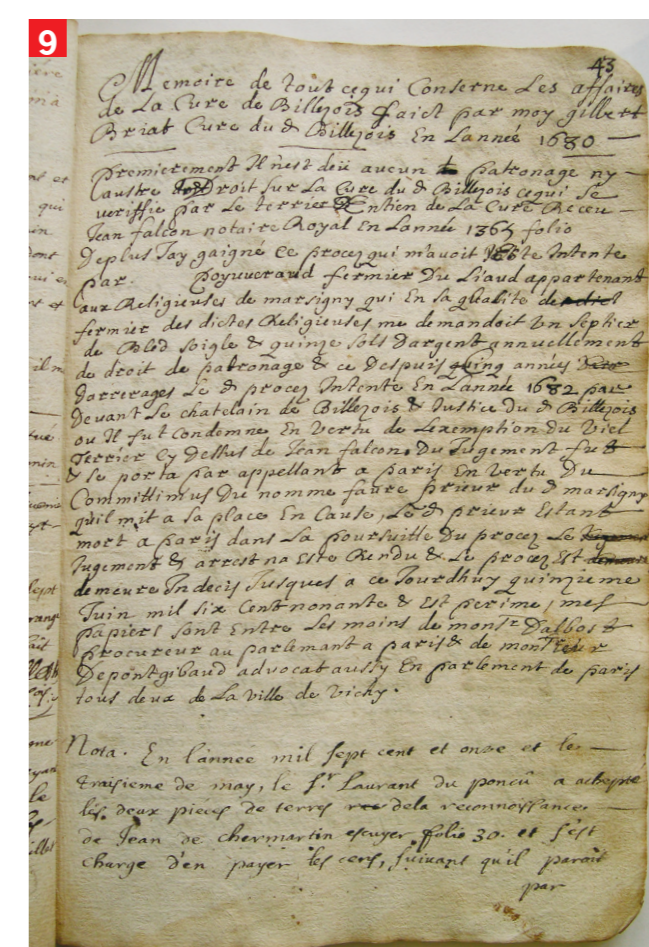 9
43
Memoire de tout cequi Conserne Les affaires
de La Cure de Billezois faict par moy gilbert
Briat Cure du d Billezois En Lannée 1680
premierement Il nest deü aucun patronage ny
Lautre Droit sur La Cure du d Billezois cequi se
veriffie par Le terrier Entien de La Cure Receu
Jean falcon notaire Royal En Lannée 1365 folio
Deplus Jay gaigné Ce procez qui m'avoit Este Intente
par fermier Du Liaud appartenant
aux Religieuses de marsigny qui En sa qualité
fermier des dictes Religieuses me demandoit Un septier
de Bled soigle & quinze sols Dargent annuellement
de droit de patronage & ce Despuis quinq années
Darrerages Le d procez Intente En Lannée 1682 par
Devant Le chatelain de Billezois & Justice du d Billezois
ou Il fut Condemne En vertu de Lexemption du Viel
Terrier Cy Dessus de Jean falcon, Du Jugement fut
& se porta par appellant a paris En vertu Du
Committimus Du nomme faure prieur du d marsigny
quil mit a sa place En Cause, Le d prieur Estant
mort a paris dans La poursuitte Du procez Le
Jugement & arrest na Este Rendu & Le procez Est
demeure Indecis Jusques a ce Jourdhuy quinzieme
Juin mil six Cent nonante & Est perime, mes
papiers sont Entre Les mains de monsr Dalbost
procureur au parlemant a paris & de monsieur
Depontgibaud advocat aussy En parlement de paris
tous deux de La ville de vichy.
Nota. En l'année mil sept cent et onze et le
traisieme de may, le Sr Laurant du poncû a achepté
les deux pieces de terres dela reconnoissance
de Jean de chermartin escuyer folio 30. et s'est
charge d'en payer les cens, suivant qu'il paroit
par